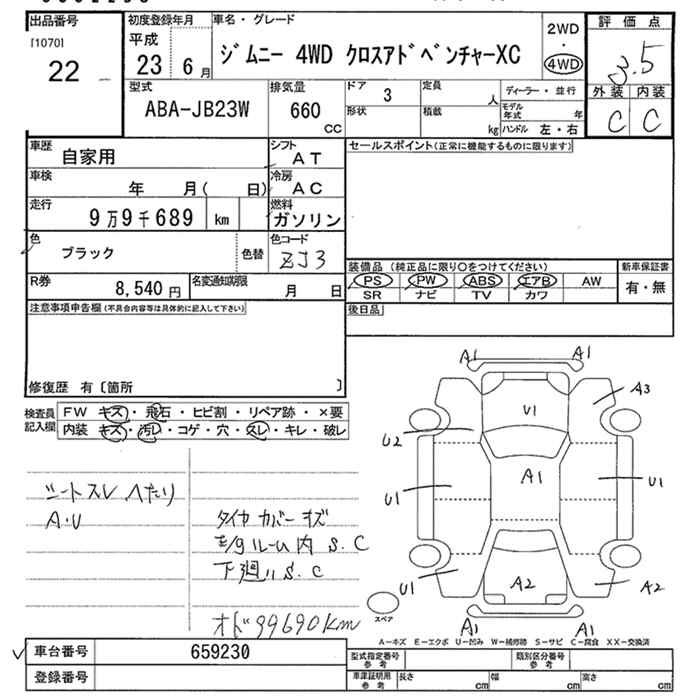 出品番号
[1070]
22
初度登録年月
平成
23 6月
車名・グレード
ジムニー 4WD クロスアドベンチャーXC
2WD
・
4WD
評価点
3.5
外装 内装
C C
型式
ABA-JB23W
排気量
660
CC
ドア 3
定員 人
形状
積載 kg
ディーラー・並行
モデル年式 年
ハンドル 左・右
車歴 自家用
シフト AT
車検 年 月( 日)
冷房 AC
走行 9万9千689 km
燃料 ガソリン
色 ブラック 色替
色コード ZJ3
R券 8,540円
名変通知期限 月 日
セールスポイント(正常に機能するものに限ります)
装備品(純正品に限り○をつけてください)
新車保証書
PS PW ABS エアB AW
SR ナビ TV カワ
有・無
後日品
注意事項申告欄(不具合内容等は具体的に記入して下さい)
修復歴 有〔箇所 〕
検査員記入欄
FW キズ・飛石・ヒビ割・リペア跡・×要
内装 キズ・汚レ・コゲ・穴・スレ・キレ・破レ
シートスレ ヘたり
A・U
タイヤカバーキズ
下廻りS.C
オド99690km
A1 A1
A3
U1
U2
A1
U1 U1
U1
A2 A2
A1 A1
スペア
A-キズ E-エクボ U-凹み W-補修跡 S-サビ C-腐食 XX-交換済
車台番号 659230
登録番号
型式指定番号 参考
類別区分番号 参考
車庫証明用 参考
長さ cm 幅 cm 高さ cm